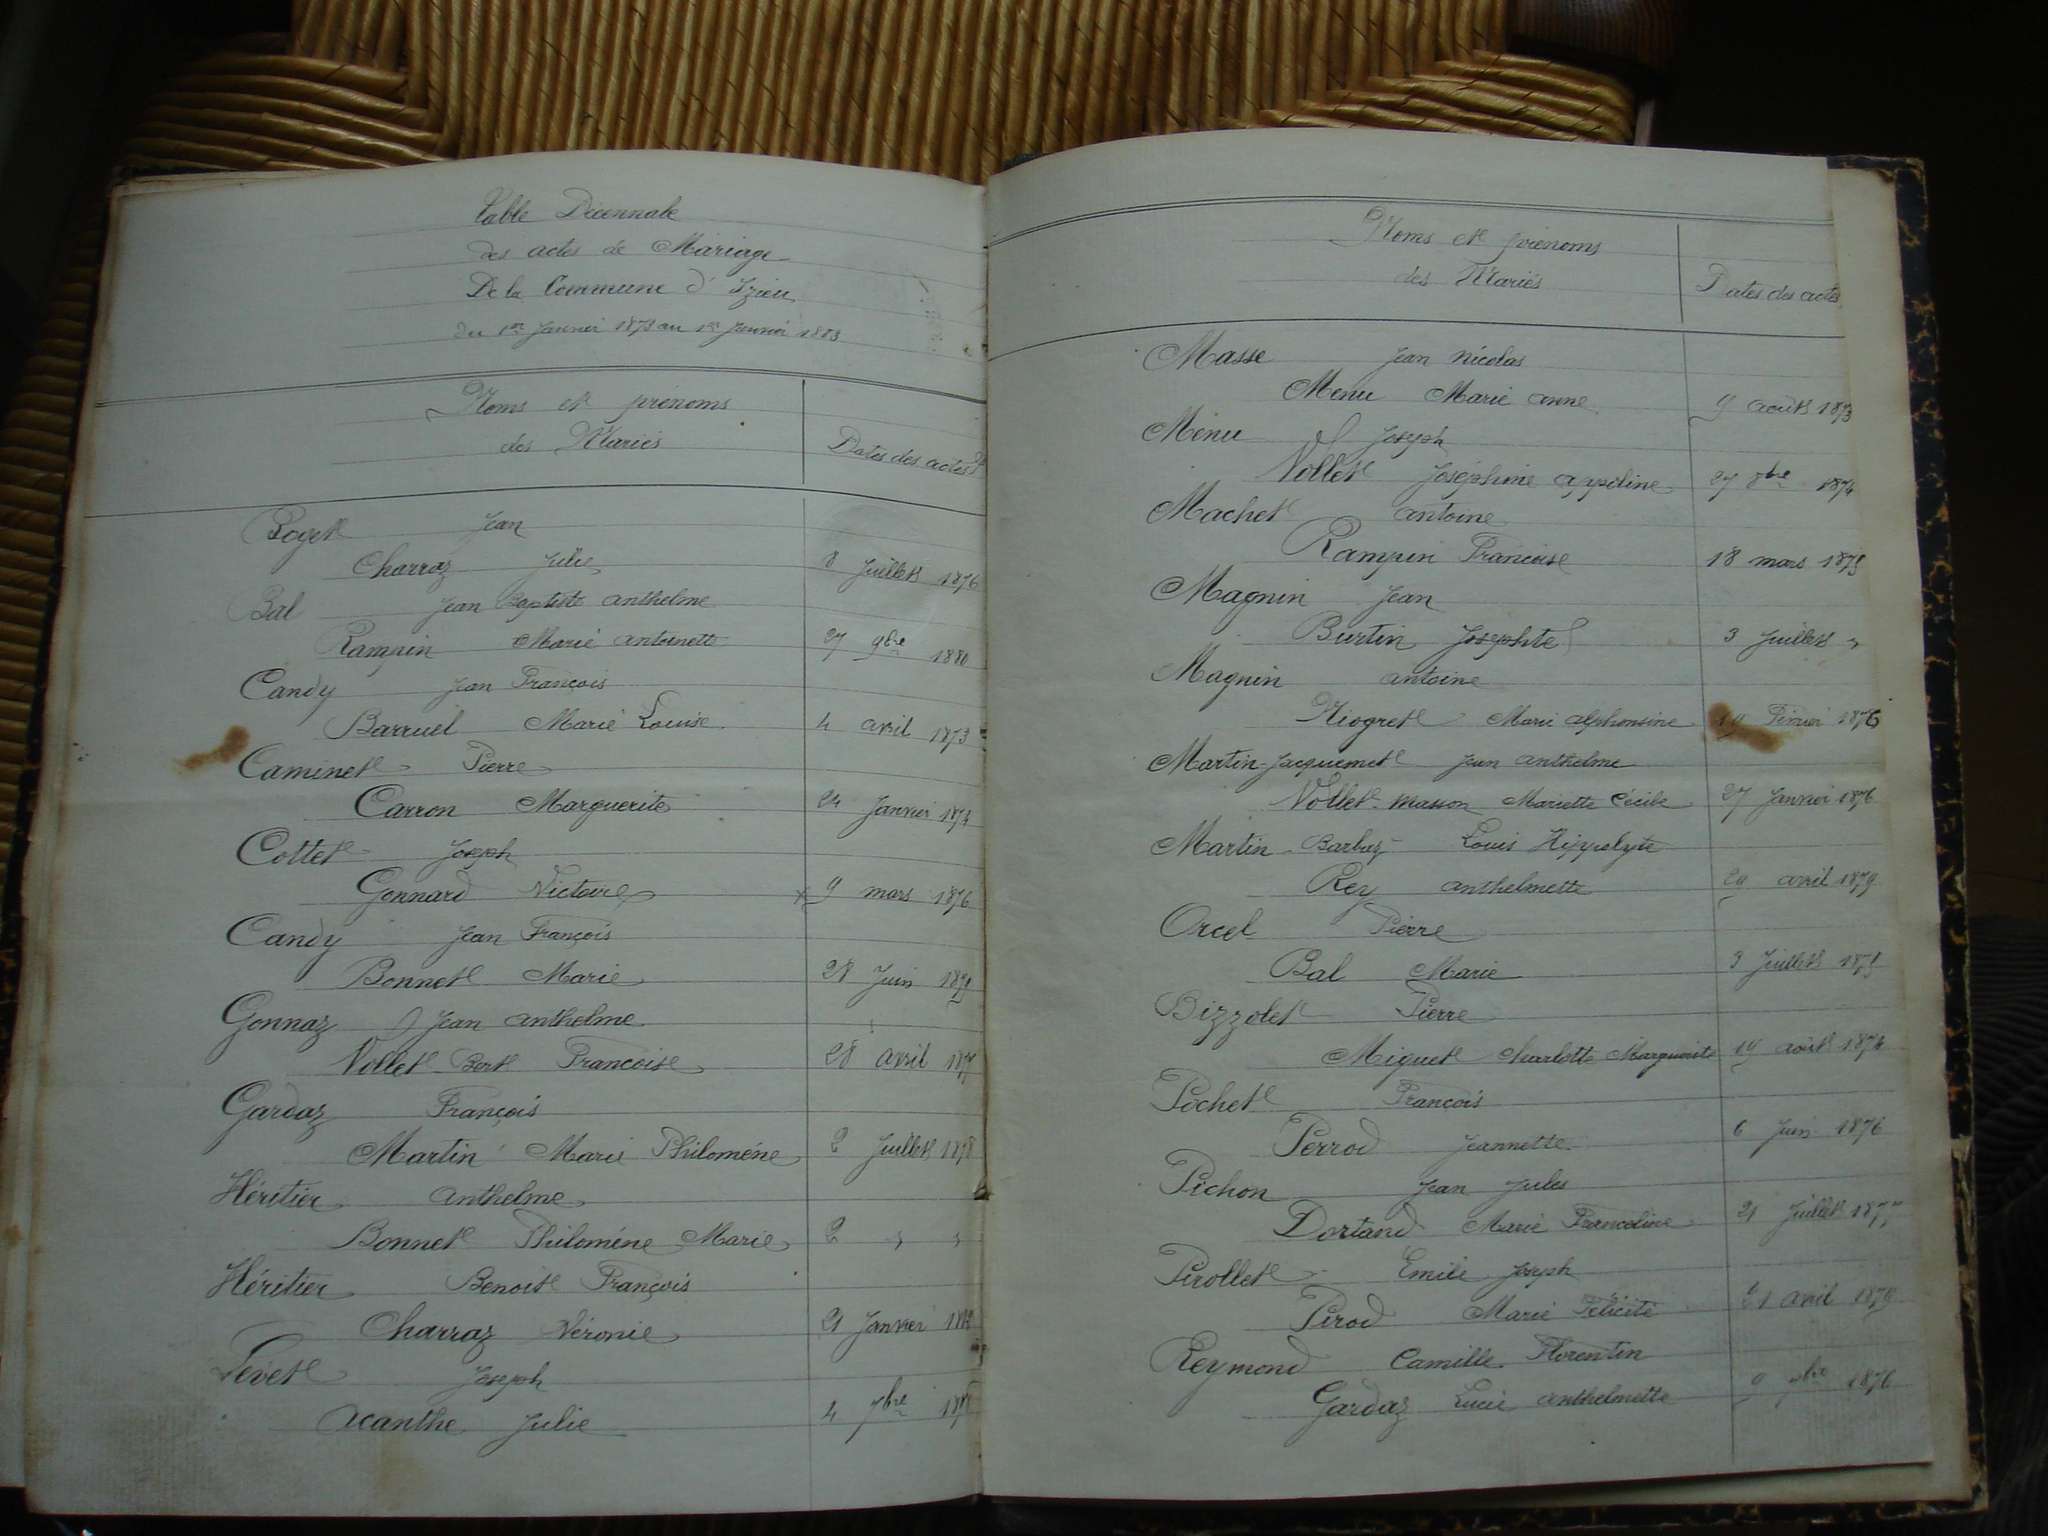 Table Décennale
des actes de Mariage
De la Commune d'Izieu
du 1er Janvier 1873 au 1er Janvier 1883
Noms et prénoms
des Mariés
Dates des actes
Jean
Charraz Julie 8 Juillet 1876
Bal Jean Baptiste anthelme
Rampin Marie antoinette 27 9bre 1880
Candy Jean François
Barruel Marie Louise 4 avril 1873
Caminet Pierre
Carron Marguerite 24 Janvier 1874
Cottet Joseph
Gonnard Victoire 9 mars 1876
Candy Jean François
Bonnet Marie 28 Juin
Gonnaz Jean anthelme
Vollet-Bert Françoise 28 avril 1877
Gardaz François
Martin Marie Philoméne 2 Juillet 1878
Héritier anthelme
Bonnet Philoméne Marie 2 " "
Héritier Benoit François
Charraz Véronie 21 Janvier
Joseph
acanthe Julie 4 7bre
Noms et prénoms
des Mariés
Dates des actes
Masse Jean nicolas
Menu Marie anne 9 août 1873
Menu Joseph
Vollet Joséphine appoline 27 8bre 1874
Machet antoine
Rampin Françoise 18 mars 1875
Magnin Jean
Burtin Josephte 3 Juillet "
Magnin antoine
Niogret Marie alphonsine 19 Février 1876
Martin-Jacquemet Jean anthelme
Vollet-Masson Mariette Cécile 27 Janvier 1876
Martin-Barbaz Louis Hippolyte
Rey anthelmette avril 1879
Orcel Pierre
Bal Marie 3 Juillet 1875
Bizzolet Pierre
Miguet Charlotte Marguerite 19 août 1874
Pochet François
Perrod Jeannette 6 Juin 1876
Pichon Jean Jules
Dortand Marie Francéline 21 Juillet 1877
Pirollet Emile Joseph
Pirod Marie Félicité 21 avril 1879
Reymond Camille Florentin
Gardaz Lucie anthelmette 9 7bre 1876